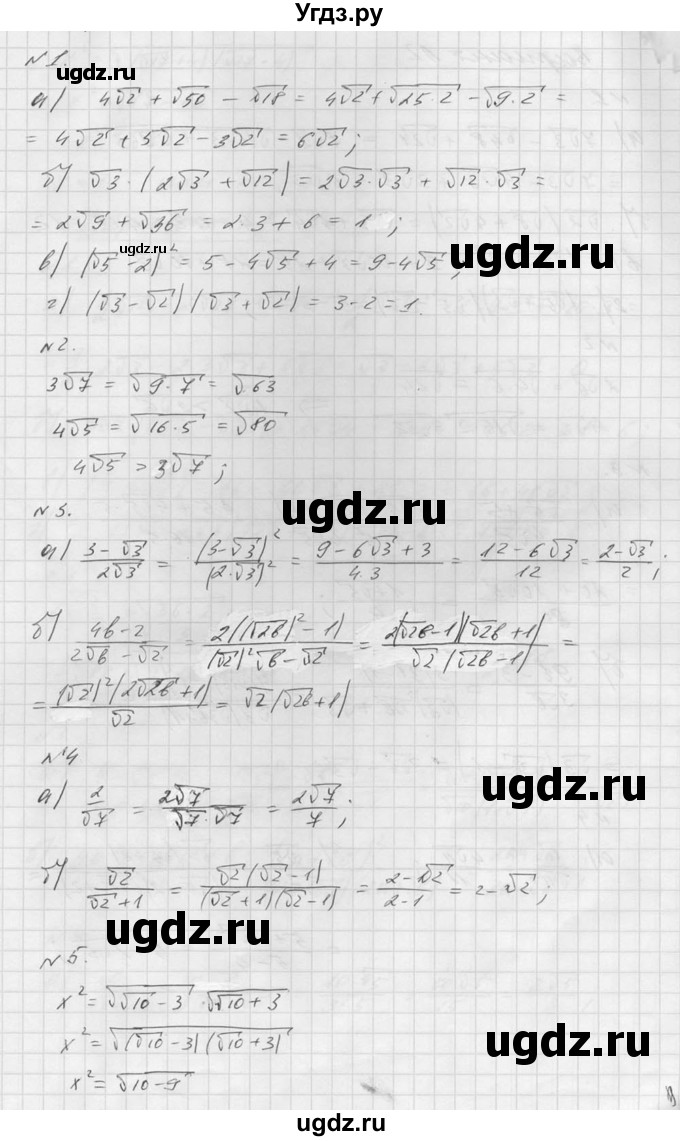 Угдз.ру
№1.
а) 4√2 + √50 − √18 = 4√2 + √25·2 − √9·2 =
= 4√2 + 5√2 − 3√2 = 6√2;
б) √3 · (2√3 + √12) = 2√3·√3 + √12·√3 =
= 2√9 + √36 = 2·3 + 6 = 1 ;
ugdz.ru
в) (√5 − 2)² = 5 − 4√5 + 4 = 9 − 4√5;
ugdz.ru
г) (√3 − √2)(√3 + √2) = 3 − 2 = 1.
№2.
3√7 = √9·7 = √63
4√5 = √16·5 = √80
4√5 > 3√7;
ugdz.ru
№3.
ugdz.ru
а) (3 − √3)/(2√3) = (3 − √3)²/(2·√3)² = (9 − 6√3 + 3)/(4·3) = (12 − 6√3)/12 = (2 − √3)/2;
б) (4b − 2)/(2√b − √2) = 2((√2b)² − 1)/((√2)²√b − √2) = 2(√2b − 1)(√2b + 1)/(√2(√2b − 1)) =
= (√2)²(2√2b + 1)/√2 = √2(√2b + 1)
ugdz.ru
№4
а) 2/√7 = 2√7/(√7·√7) = 2√7/7;
ugdz.ru
б) √2/(√2 + 1) = √2(√2 − 1)/((√2 + 1)(√2 − 1)) = (2 − √2)/(2 − 1) = 2 − √2;
ugdz.ru
№5.
x² = √√10 − 3 · √√10 + 3
ugdz.ru
x² = √(√10 − 3)(√10 + 3)
x² = √10 − 9
ugdz.ru